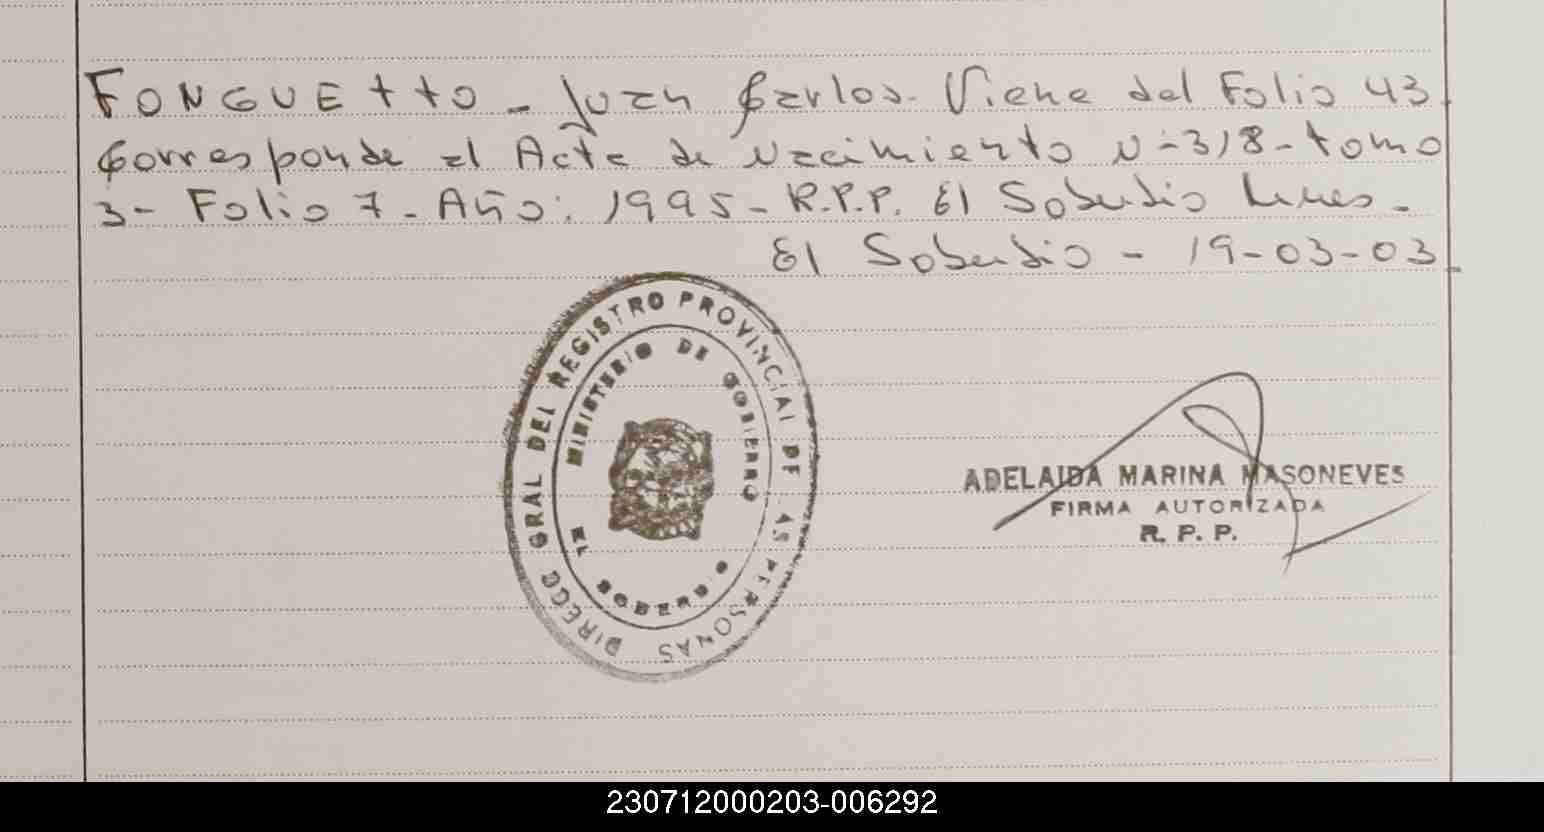 FONGUETTO - Juan Carlos. Viene del Folio 43.
Corresponde al Acta de Nacimiento N-318-tomo
3- Folio 7- Año: 1995- R.P.P. El Soberbio Mnes-
El Soberbio - 19-03-03
DIRECC GRAL DEL REGISTRO PROVINCIAL DE LAS PERSONAS
MINISTERIO DE GOBIERNO
EL SOBERBIO
ADELAIDA MARINA MASONEVES
FIRMA AUTORIZADA
R. P. P.
230712000203-006292